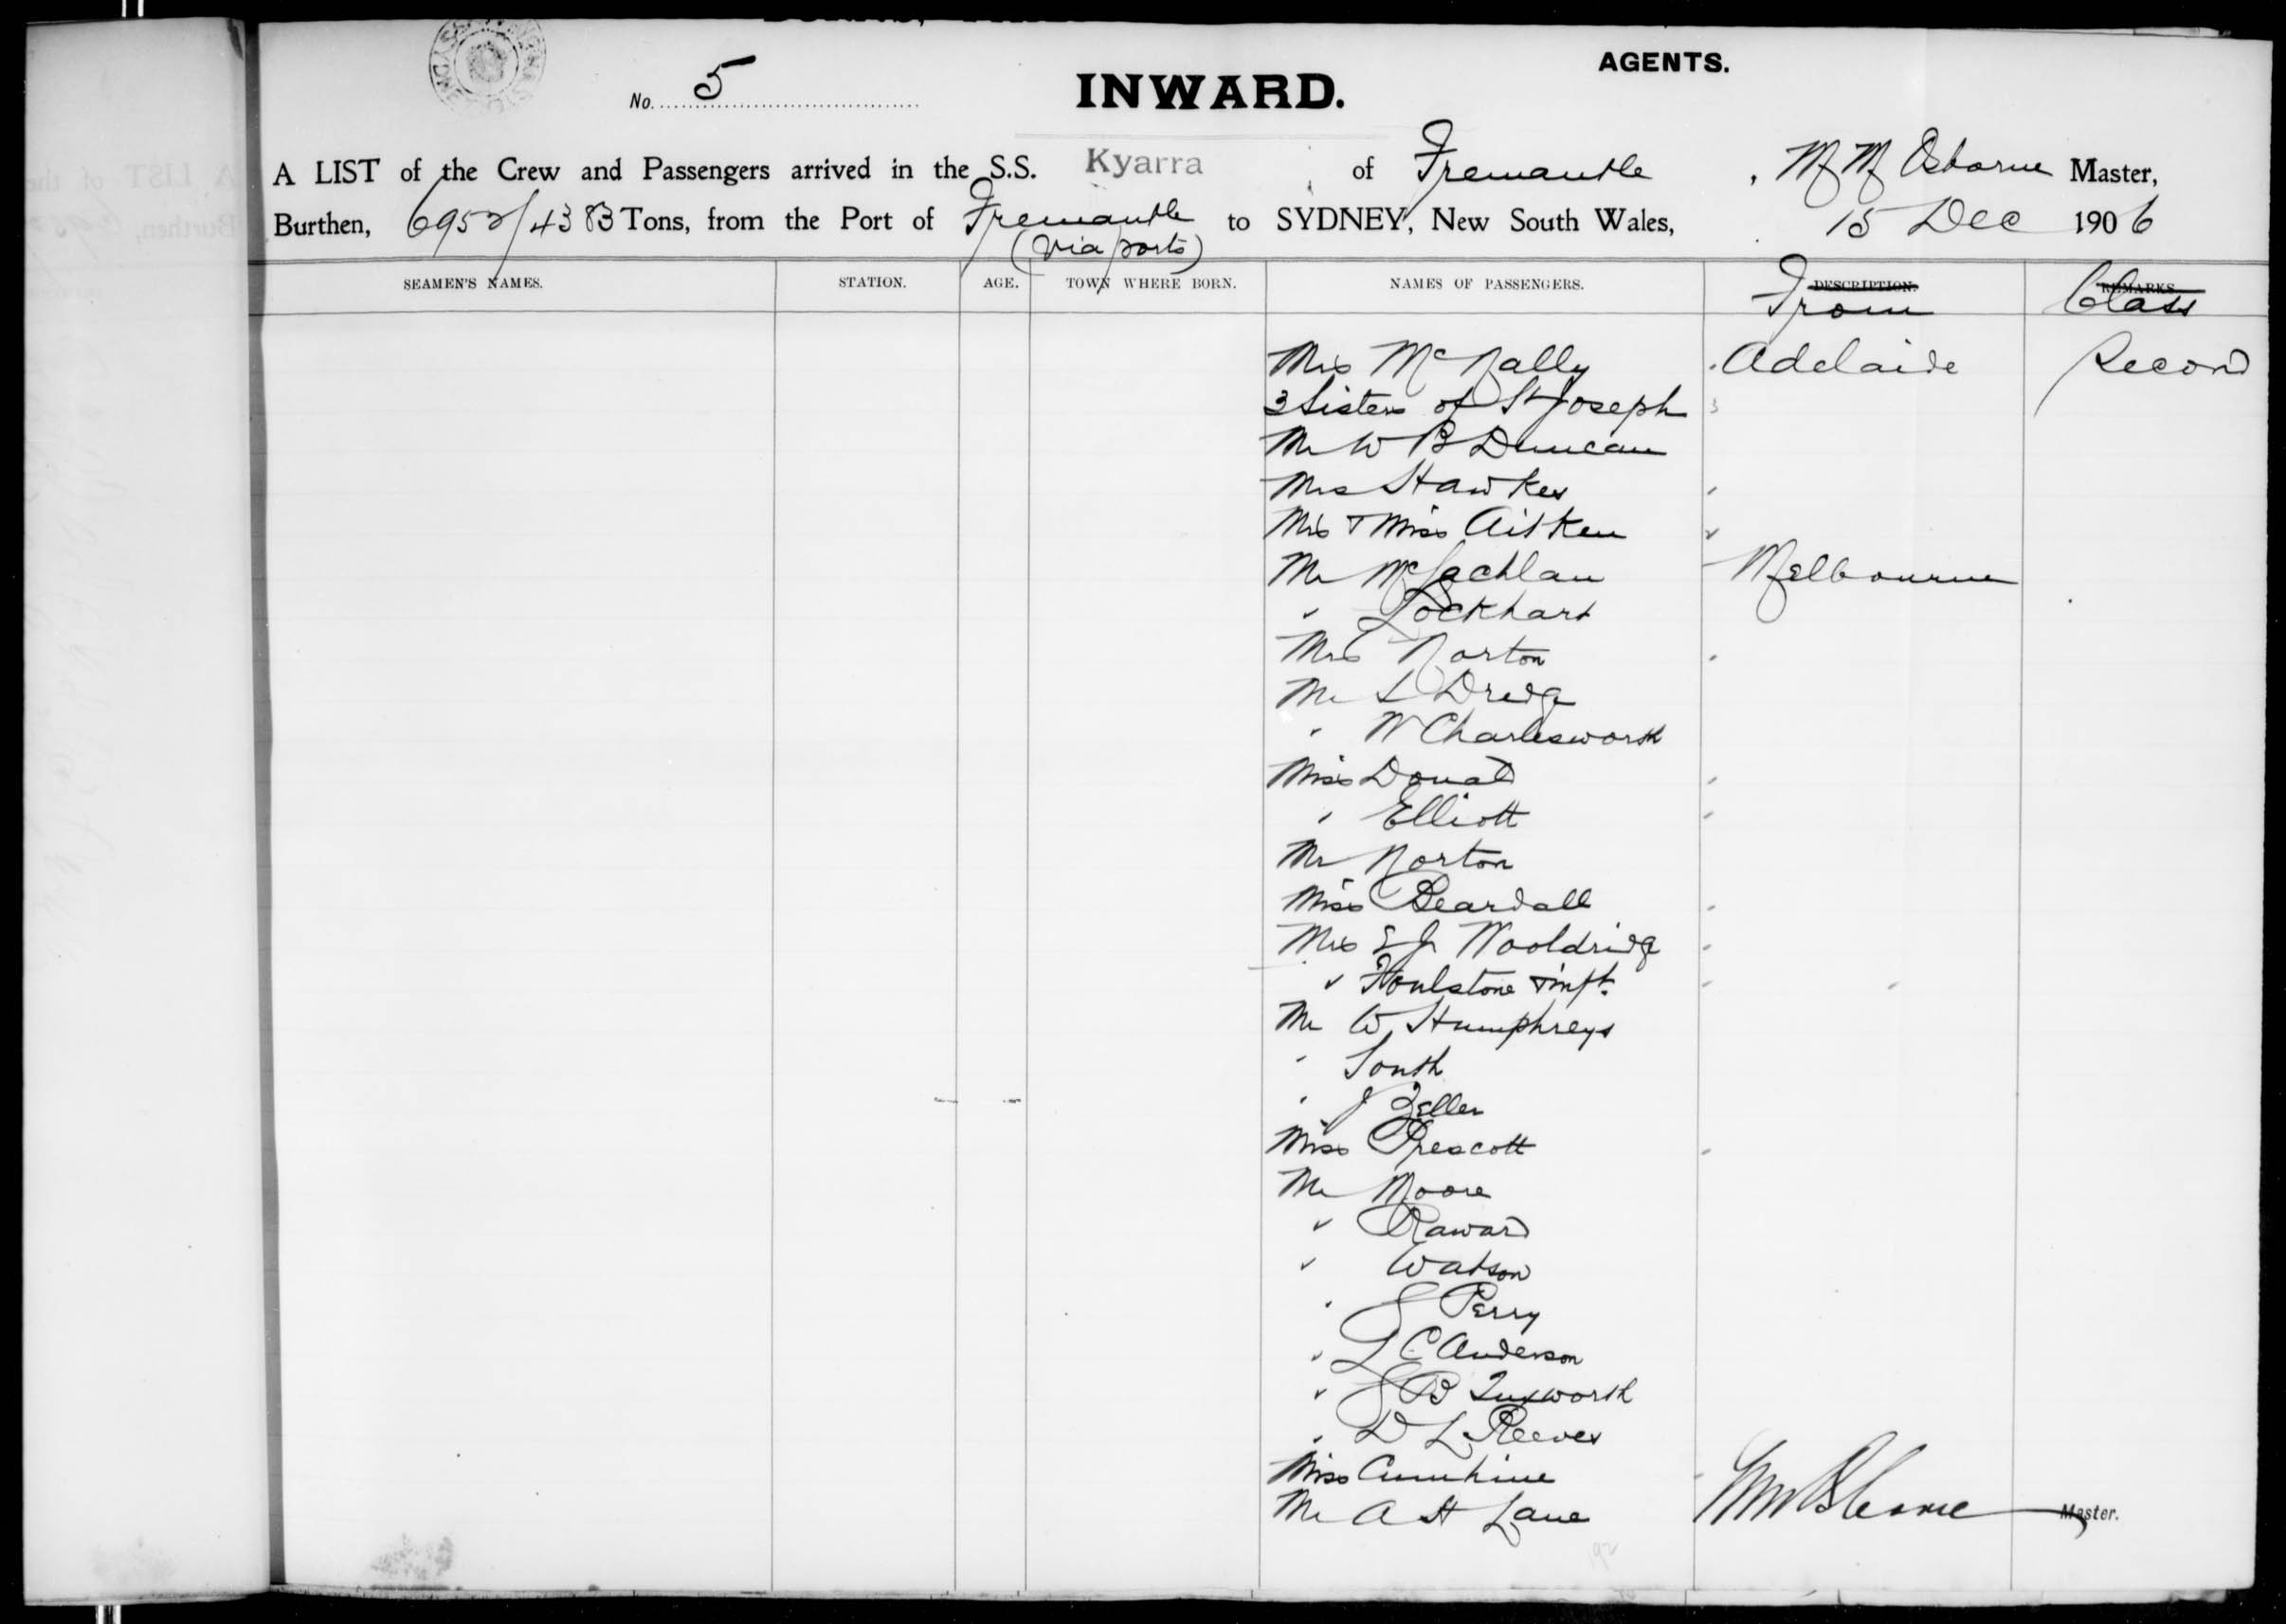 AGENTS.
No. 5
INWARD.
A LIST of the Crew and Passengers arrived in the S.S. Kyarra of Fremantle, M M Osborne Master,
Burthen, 6952/4383 Tons, from the Port of Fremantle to SYDNEY, New South Wales, 15 Dec 1906
(via ports)
SEAMEN'S NAMES. STATION. AGE. TOWN WHERE BORN. NAMES OF PASSENGERS. DESCRIPTION. REMARKS.
From Class
Mrs McNally Adelaide Second
3 Sisters of St Joseph 3
Mr W B Duncan
Mrs Hawkes
Mrs + Miss Aitken
Mr McLachlan Melbourne
" Lockhart
Mrs Norton
Mr L Dredge
" W Charlesworth
Miss Donald
" Elliott
Mr Norton
Miss Beardall
Mrs E J Wooldridge
" Foulstone + inft.
Mr W Humphreys
" South
" J Zeller
Miss Prescott
Mr Moore
" Raward
" Watson
" Perry
" L C Anderson
" B Tuxworth
" D L Reeves
Miss
Mr A H Lane
Master.